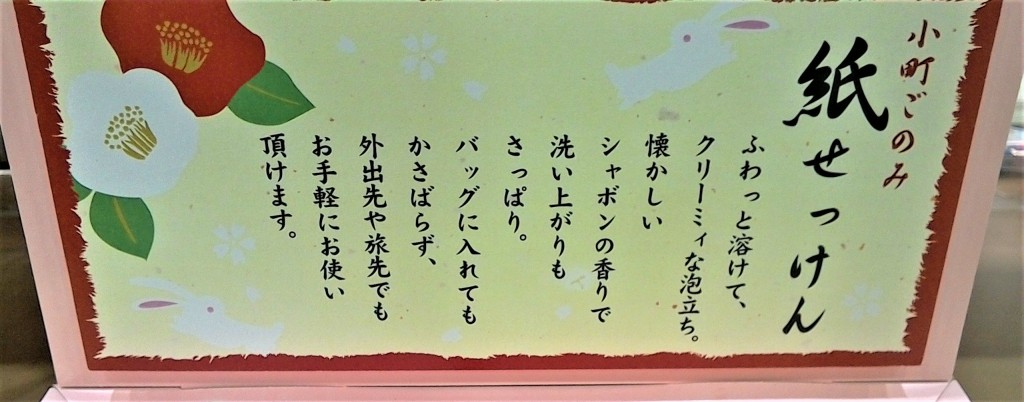 小町ごのみ
紙せっけん
ふわっと溶けて、
クリーミィな泡立ち。
懐かしい
シャボンの香りで
洗い上がりも
さっぱり。
バッグに入れても
かさばらず、
外出先や旅先でも
お手軽にお使い
頂けます。